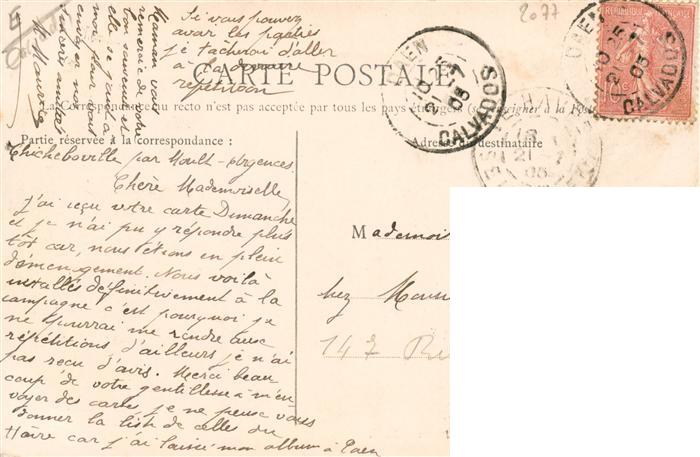 2077
Si vous pouvez
avoir les places
je tacherai d'aller
à la dernière
répétition
Maman vous
remercie de votre
bon souvenir et
elle se joint à
moi pour vous
envoyer nos
sincères amitiés
M Maurice
CARTE POSTALE
La Correspondance au recto n'est pas acceptée par tous les pays étrangers (se renseigner à la Poste
Partie réservée à la correspondance :
Adresse du destinataire
CAEN
CALVADOS
CAEN
CALVADOS
RÉPUBLIQUE FRANÇAISE
Chicheboville par Moult-Argences.
Chère Mademoiselle
J'ai reçu votre carte Dimanche
et je n'ai pu y répondre plus
tôt car, nous étions en plein
déménagement. Nous voilà
installés définitivement à la
campagne c'est pourquoi je
ne pourrai me rendre aux
répétitions d'ailleurs je n'ai
pas reçu d'avis. Merci beau
coup de votre gentillesse à m'en
voyer des cartes, je ne peux vous
donner la liste de celles du
Hâvre car j'ai laissé mon album à Caen
Mademois
chez Mons
147 R